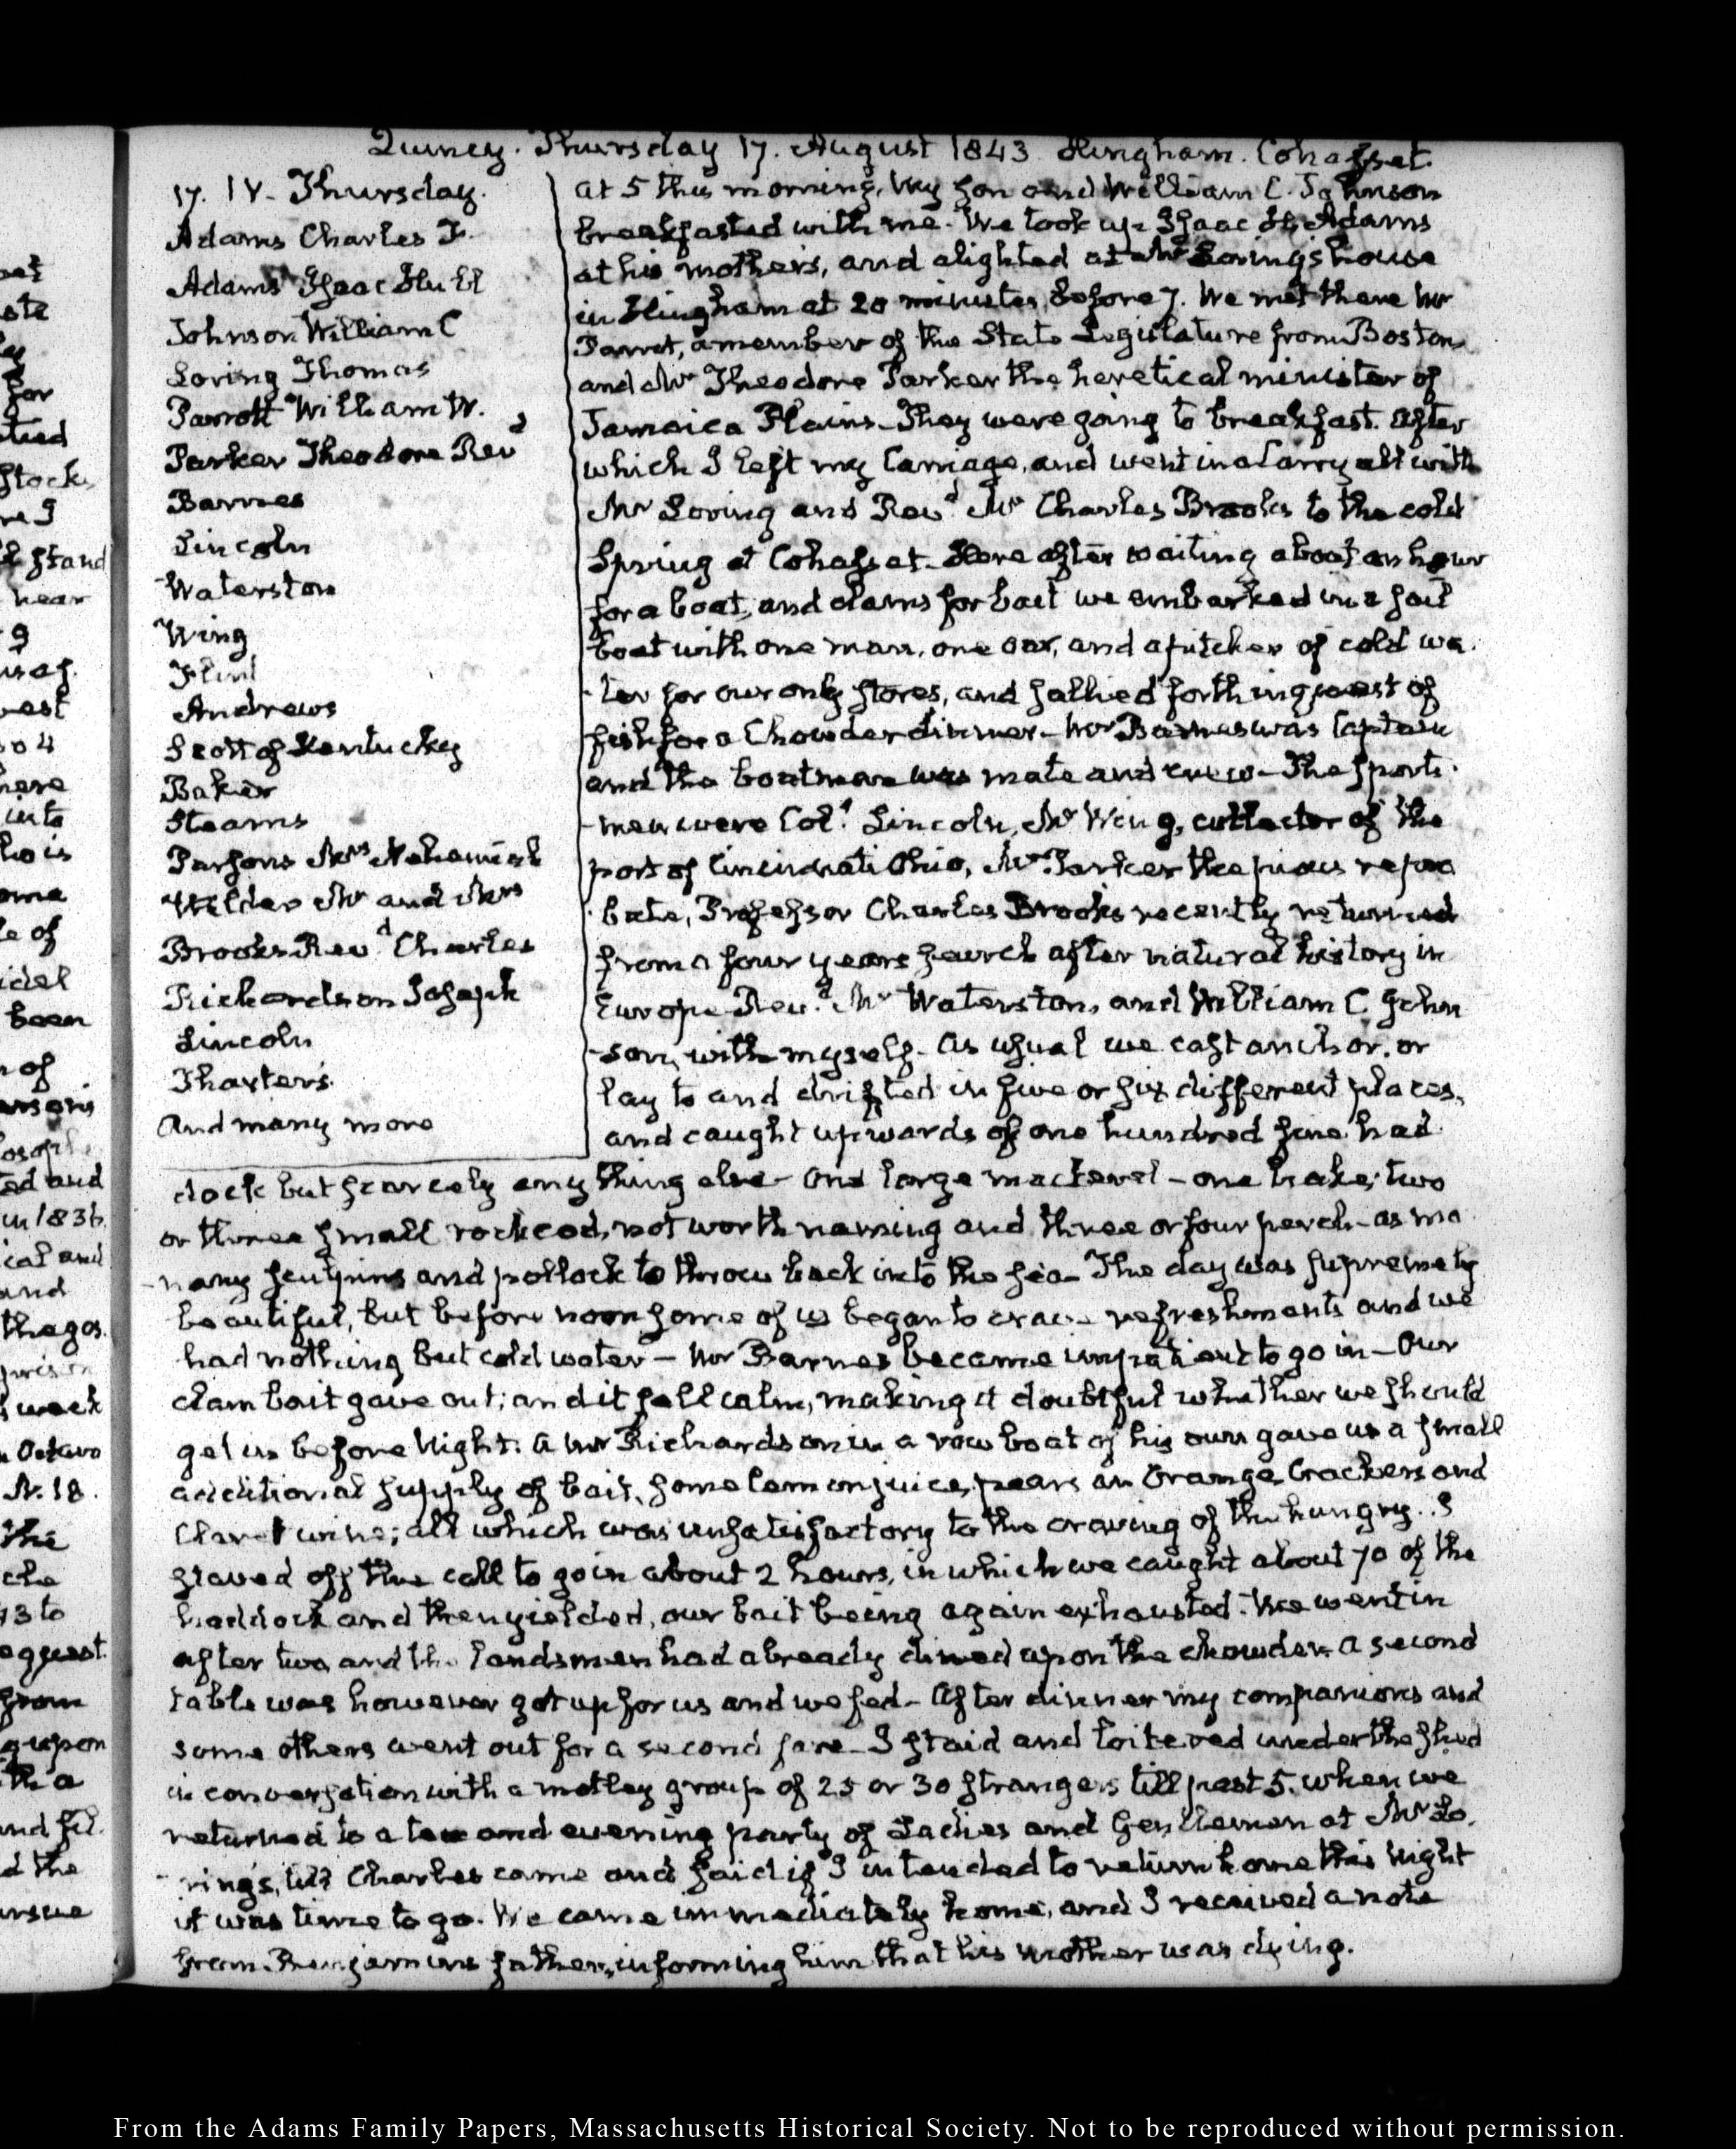 Quincy. Thursday 17. August 1843. Hingham. Cohasset.
17. IV. Thursday.
Adams Charles F.
Adams Isaac Hull
Johnson William C
Loring Thomas
Parrott William W.
Parker Theodore Revd
Barnes
Lincoln
Waterston
Wing
Flint
Andrews
Scott of Kentucky
Baker
Stearns
Parsons Mrs Nehemiah
Wilder Mr and Mrs
Brooks Revd Charles
Richardson Joseph
Lincoln
Thaxter's
And many more
at 5 this morning, My Son and William C. Johnson
breakfasted with me. We took up Isaac H. Adams
at his mothers, and alighted at Mr Loring's house
in Hingham at 20 minutes before 7. We met there Mr
Parrot, a member of the State Legislature from Boston
and Mr Theodore Parker the heretical minister of
Jamaica Plains. They were going to breakfast. After
which I left my Carriage, and went in a Carryall with
Mr Loring and Revd Mr Charles Brooks to the cold
Spring at Cohasset. Here after waiting about an hour
for a boat, and clams for bait we embarked in a sail
boat with one man, one oar, and a pitcher of cold wa-
-ter for our only stores, and sallied forth in quest of
fish for a Chowder dinner. Mr Barnes was Captain
and the boatman was mate and crew. The sports-
-men were Coll Lincoln, Mr Wing, collector of the
port of Cincinnati Ohio, Mr Parker the pious repro
-bate, Professor Charles Brooks recently returned
from a four years search after natural history in
Europe Revd Mr Waterston, and William C. John
-son, with myself. As usual we cast anchor, or
lay to and drifted in five or six different places,
and caught upwards of one hundred fine had-
dock but scarcely any thing else. One large mackerel - one hake; two
or three small rock cod, not worth naming and three or four perch - as ma
-nany sculpins and pollock to throw back into the sea. The day was supremely
beautiful, but before noon some of us began to crave refreshments and we
had nothing but cold water - Mr Barnes became impatient to go in - Our
clam bait gave out; and it fell calm, making it doubtful whether we should
get in before Night. A Mr Richardson in a row boat of his own gave us a small
additional supply of bait, some lemon juice, pears an Orange Crackers and
Claret wine; all which was unsatisfactory to the craving of the hungry. I
staved off the call to go in about 2 hours, in which we caught about 70 of the
haddock and then yielded, our bait being again exhausted. We went in
after two, and the landsmen had already dined upon the chowder. A second
table was however got up for us and we fed. After dinner my companions and
some others went out for a second fare. I staid and loitered under the shed
in conversation with a motley group of 25 or 30 strangers till past 5. when we
returned to a tea and evening party of Ladies and Gentlemen at Mr Lo-
-ring's, till Charles came and said if I intended to return home this Night
it was time to go. We came immediately home, and I received a note
from Benjamins father, informing him that his mother was dying.
From the Adams Family Papers, Massachusetts Historical Society. Not to be reproduced without permission.